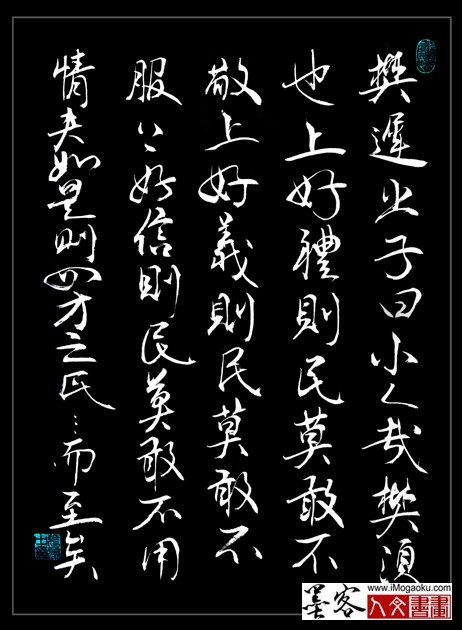 樊遲出子曰小人哉樊須
也上好禮則民莫敢不
敬上好義則民莫敢不
服上好信則民莫敢不用
情夫如是則四方之民…而至矣
www.iMogaoku.com
墨客人文書畫